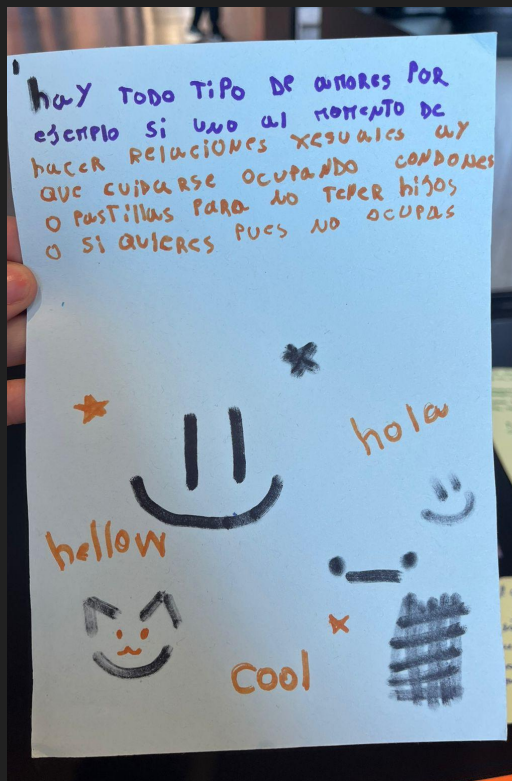 hay TODO TIPO DE amores POR
ejemplo si uno al momento DE
hacer Relaciones xesuales ay
que cuidarse ocupando condones
o Pastillas para no Tener hijos
o si quieres pues no ocupas
hola
hellow
cool